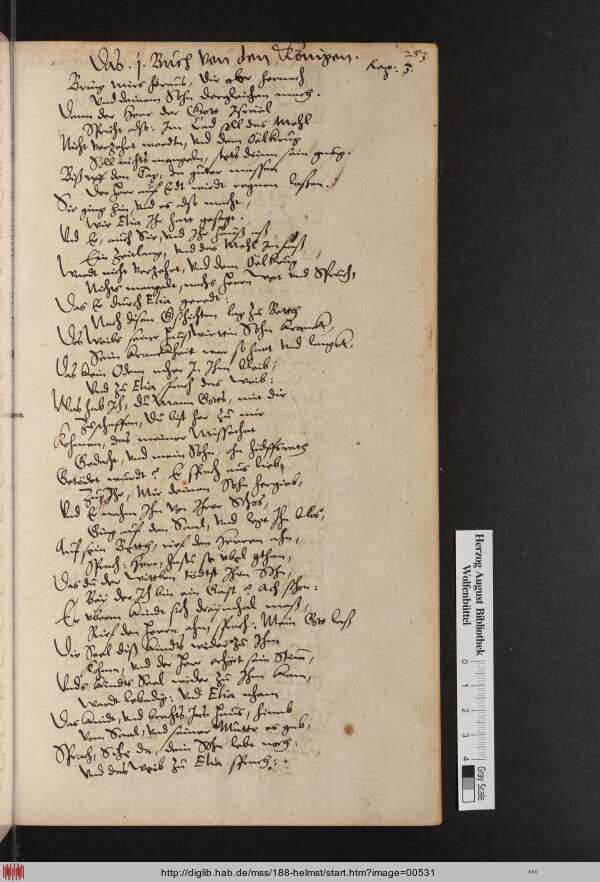 253
Das .j. Buch von den Königen.
Kap: 3.
Bring mirs herauß, dir aber hernach
Und deinem Sohn dergleichen mach.
Dann der Herr der Gott Israel
Spricht also: Im Cad soll das Mehl
Nicht verzehrt werden, und dem Oelkrug
Soll nichts mangeln, stets drinn sein gnug.
Biß uff den Tag, da guter massen
Der Herr auf Erdt wirdt regnen lassen.
Sie ging hin, und es also macht,
Wie Elia Ihr hatt gesagt.
Und Er, auch Sie, und Ihr Hauß aß
Ein Zeitlang, und das Mehl Im faß
Wardt nicht verzehrt, und dem Oelkrug
Nichts mangelt, nachs Herrn Wort und Spruch,
Das Er durch Elia geredt:
Nach disen Gschichten lag zu Beth
Des Weibs seiner Haußwürttin Sohn kranckh,
Sein kranckheit war so hart und langkh,
Das kein Odem mher In Ihm bleib,
Und zu Elia sprach das Weib:
Was hab Ich, du Mann Gotts, mit dir
Zuschaffen, Du bist her zu mir
Kohmen, das meiner Missethat
Gedacht, und mein Sohn, ohn
Getödet wurdt? Er sprach aus lieb,
Zu Ihr, Mir deinen Sohn hergieb,
Und Er nahm Ihn von Ihrer Schos,
Ging auf den Saal, und legt Ihn blos,
Auf sein Beth, rief den Herren ahn,
Sprach: Herr, hastu so ubel gthan,
Das du der Wittben tödtst Ihrn Sohn,
Bey der Ich bin ein Gast? Ach schon:
Er uberm kindt sich dreymahl maß,
Rief den Herrn ahn, sprach: Mein Gott laß
Die Seel diß kindts wider zu Ihm
Kohmn, und der Herr erhört sein Stimm,
Unds kindts Seel wider zu Ihm kam,
Wardt lebendig: Und Elia nham
Das kindt, und brachts Ins Hauß, hinab
Vom Saal, und seiner Mutter es gab,
Sprach, Sihe da, dein Sohn lebt noch:
Und das Weib zu Elia sprach: .
Herzog August Bibliothek
Wolfenbüttel
0 1 2 3 4
Gray Scale
http://diglib.hab.de/mss/188-helmst/start.htm?image=00531